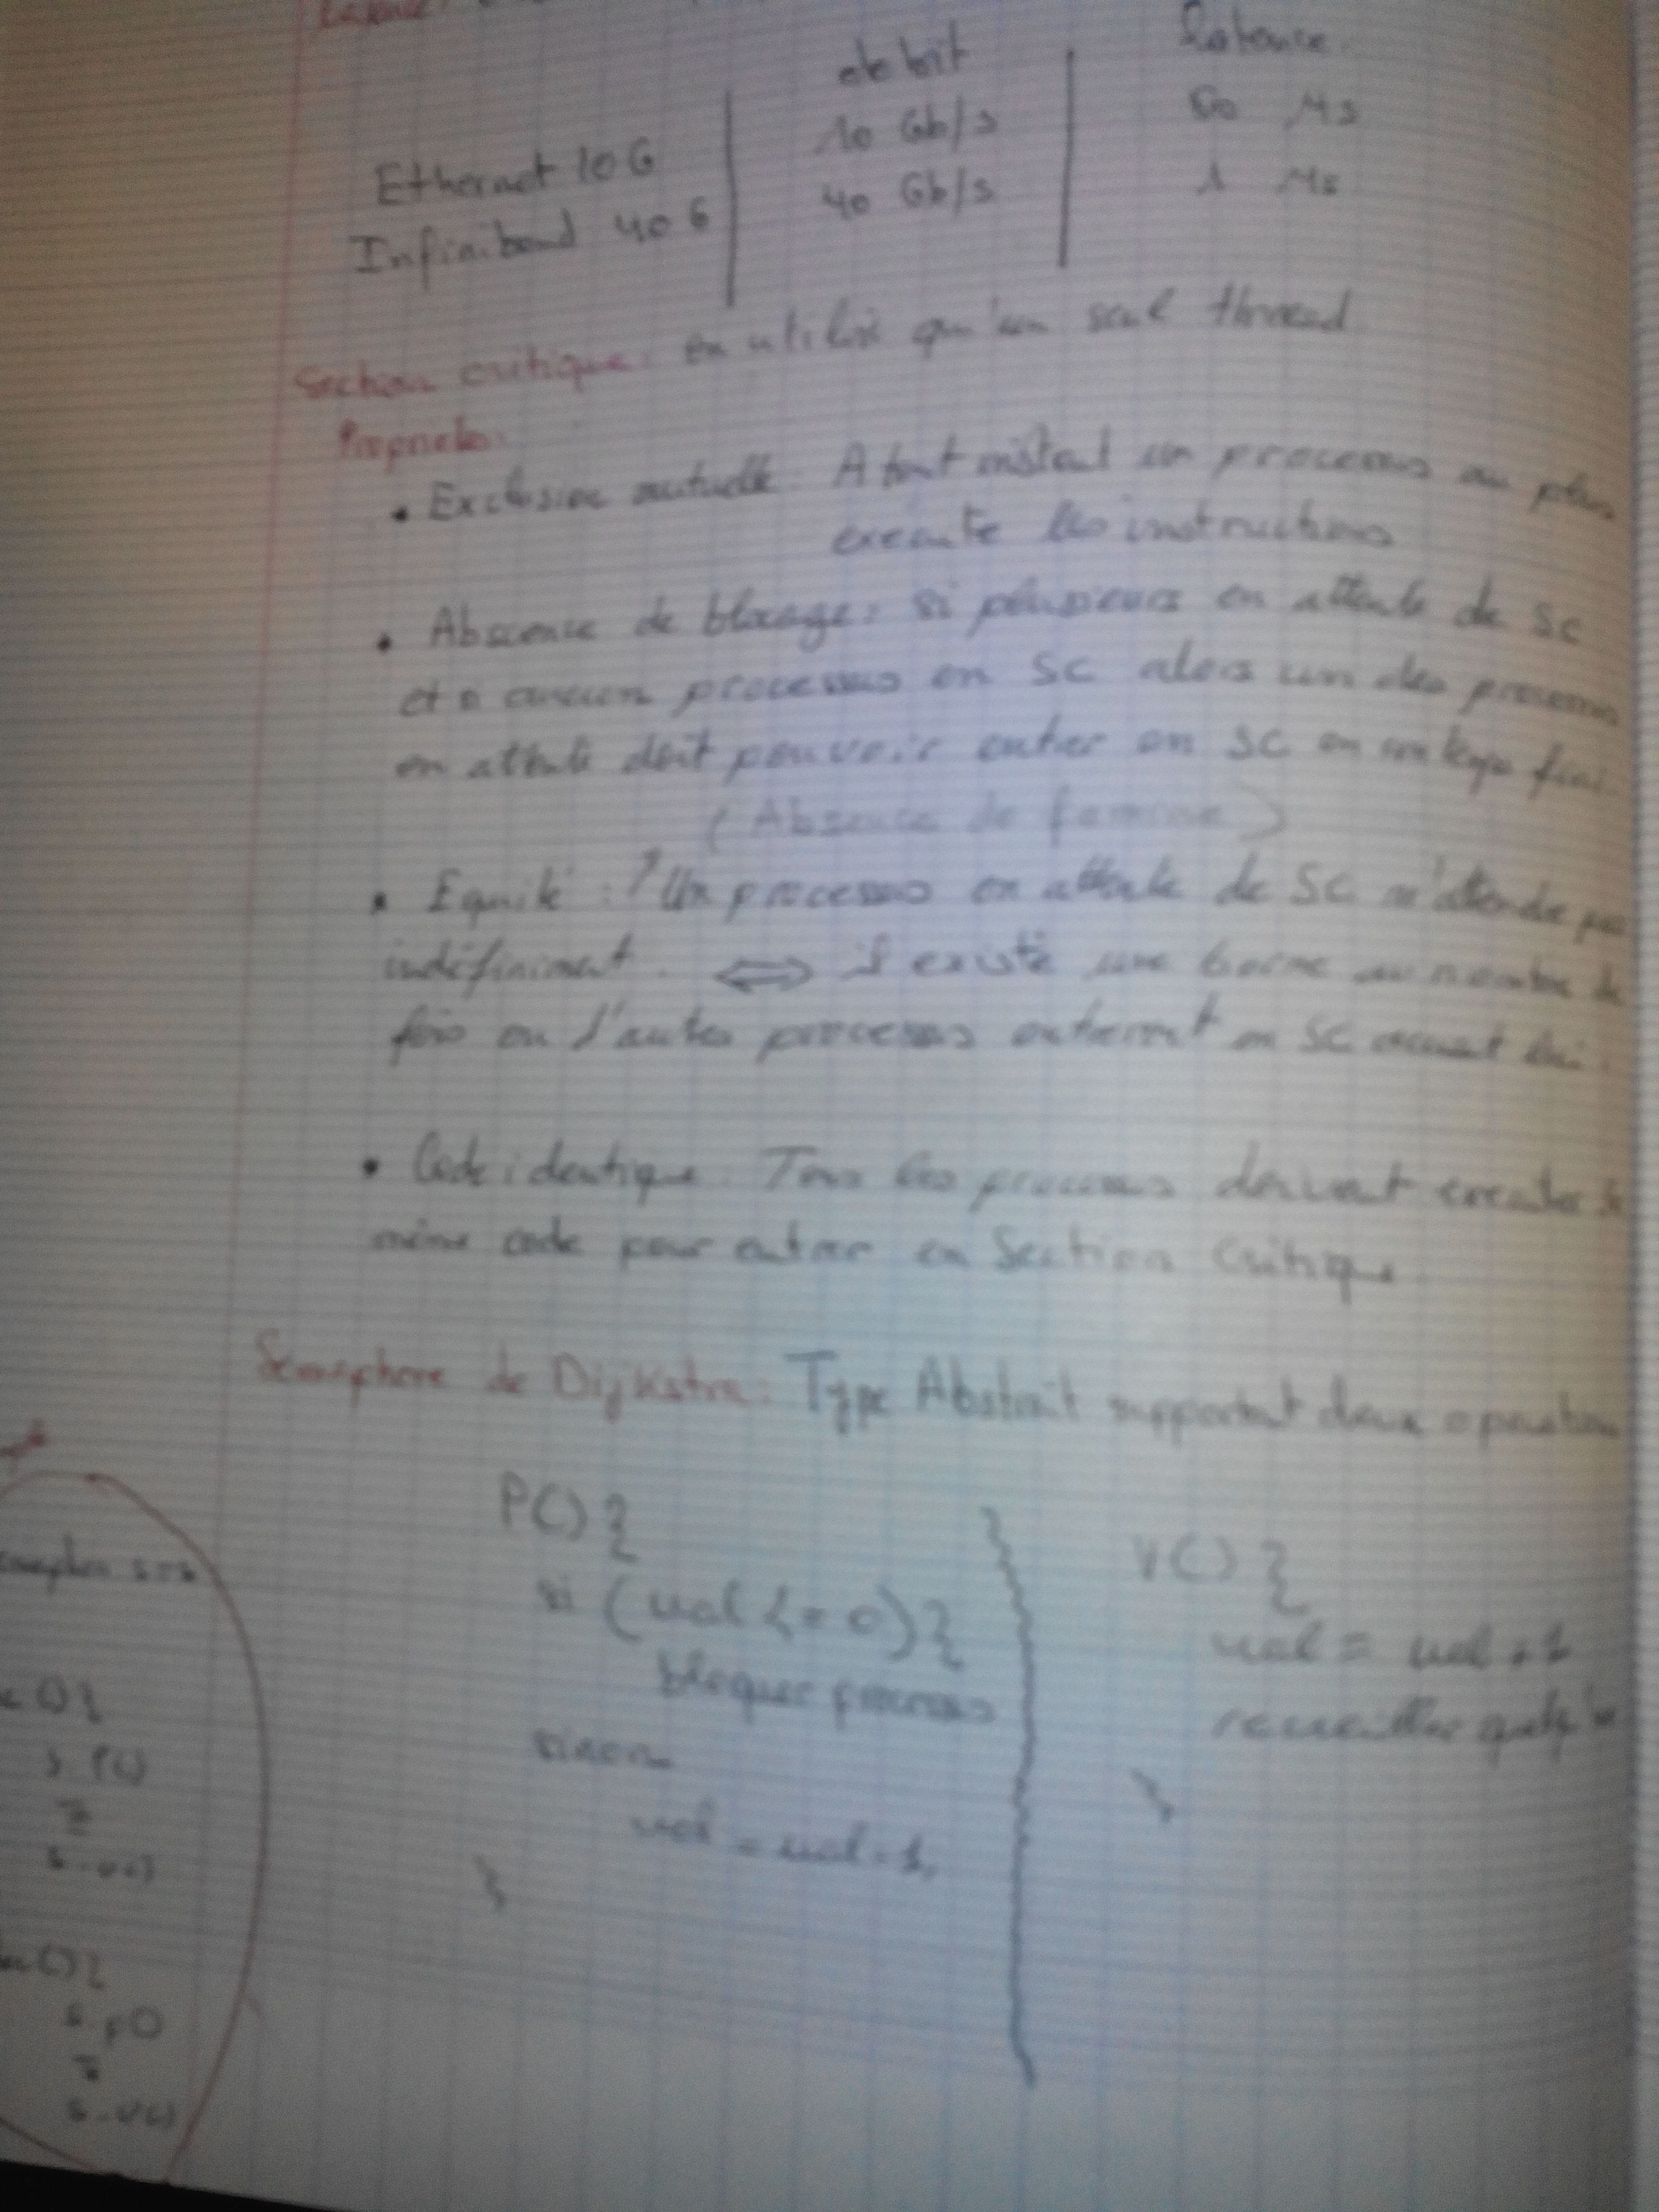 Latence
debit Latence
Ethernet 10 G 10 Gb/s 50 Ms
Infiniband 40 G 40 Gb/s 1 Ms
Section critique: en utilise qu'un seul thread
Propriétés:
• Exclusion mutuelle: A tout instant un processus au plus
execute les instructions
• Abscence de blocage: si plusieurs en attente de SC
et si aucun processus en SC alors un des processus
en attente doit pouvoir entrer en SC en un temps fini.
(Absence de famine)
• Equité: ? Un processus en attente de SC n'attendre pas
indéfiniment. ⟺ il existe une borne au nombre de
fois ou d'autres processus entreront en SC avant lui.
• Code identique. Tous les processus doivent executer le
même code pour entrer en Section Critique
Semaphore de Dijkstra: Type Abstrait supportant deux operation
P() {
si (val <= 0) {
bloquer processus
sinon
val = val - 1,
}
V() {
val = val + 1
reveiller
}
() {
s.P()
s.v()
() {
s.p()
s.v()